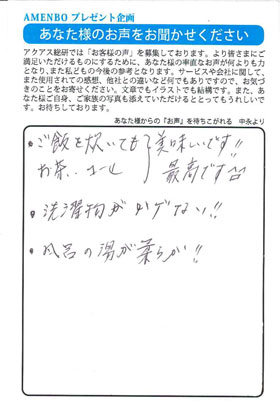 AMENBO プレゼント企画
あなた様のお声をお聞かせください
アクアス総研では「お客様の声」を募集しております。より皆さまにご
満足いただけるものにするために、あなた様の率直なお声が何よりも力
となり、また私どもの今後の参考となります。サービスや会社に関して、
また使用されての感想、他社との違いなど何でもありですので、お気づ
きのことをお寄せください。文章でもイラストでも結構です。また、あ
なた様ご自身、ご家族の写真も添えていただけるととってもうれしいで
す。お待ちしております。
あなた様からの『お声』を待ちこがれる 中永より
• ご飯を炊いても 美味いです!!
お茶・・ 最高です
• 洗濯物が !!
• 風呂の湯が柔らか!!